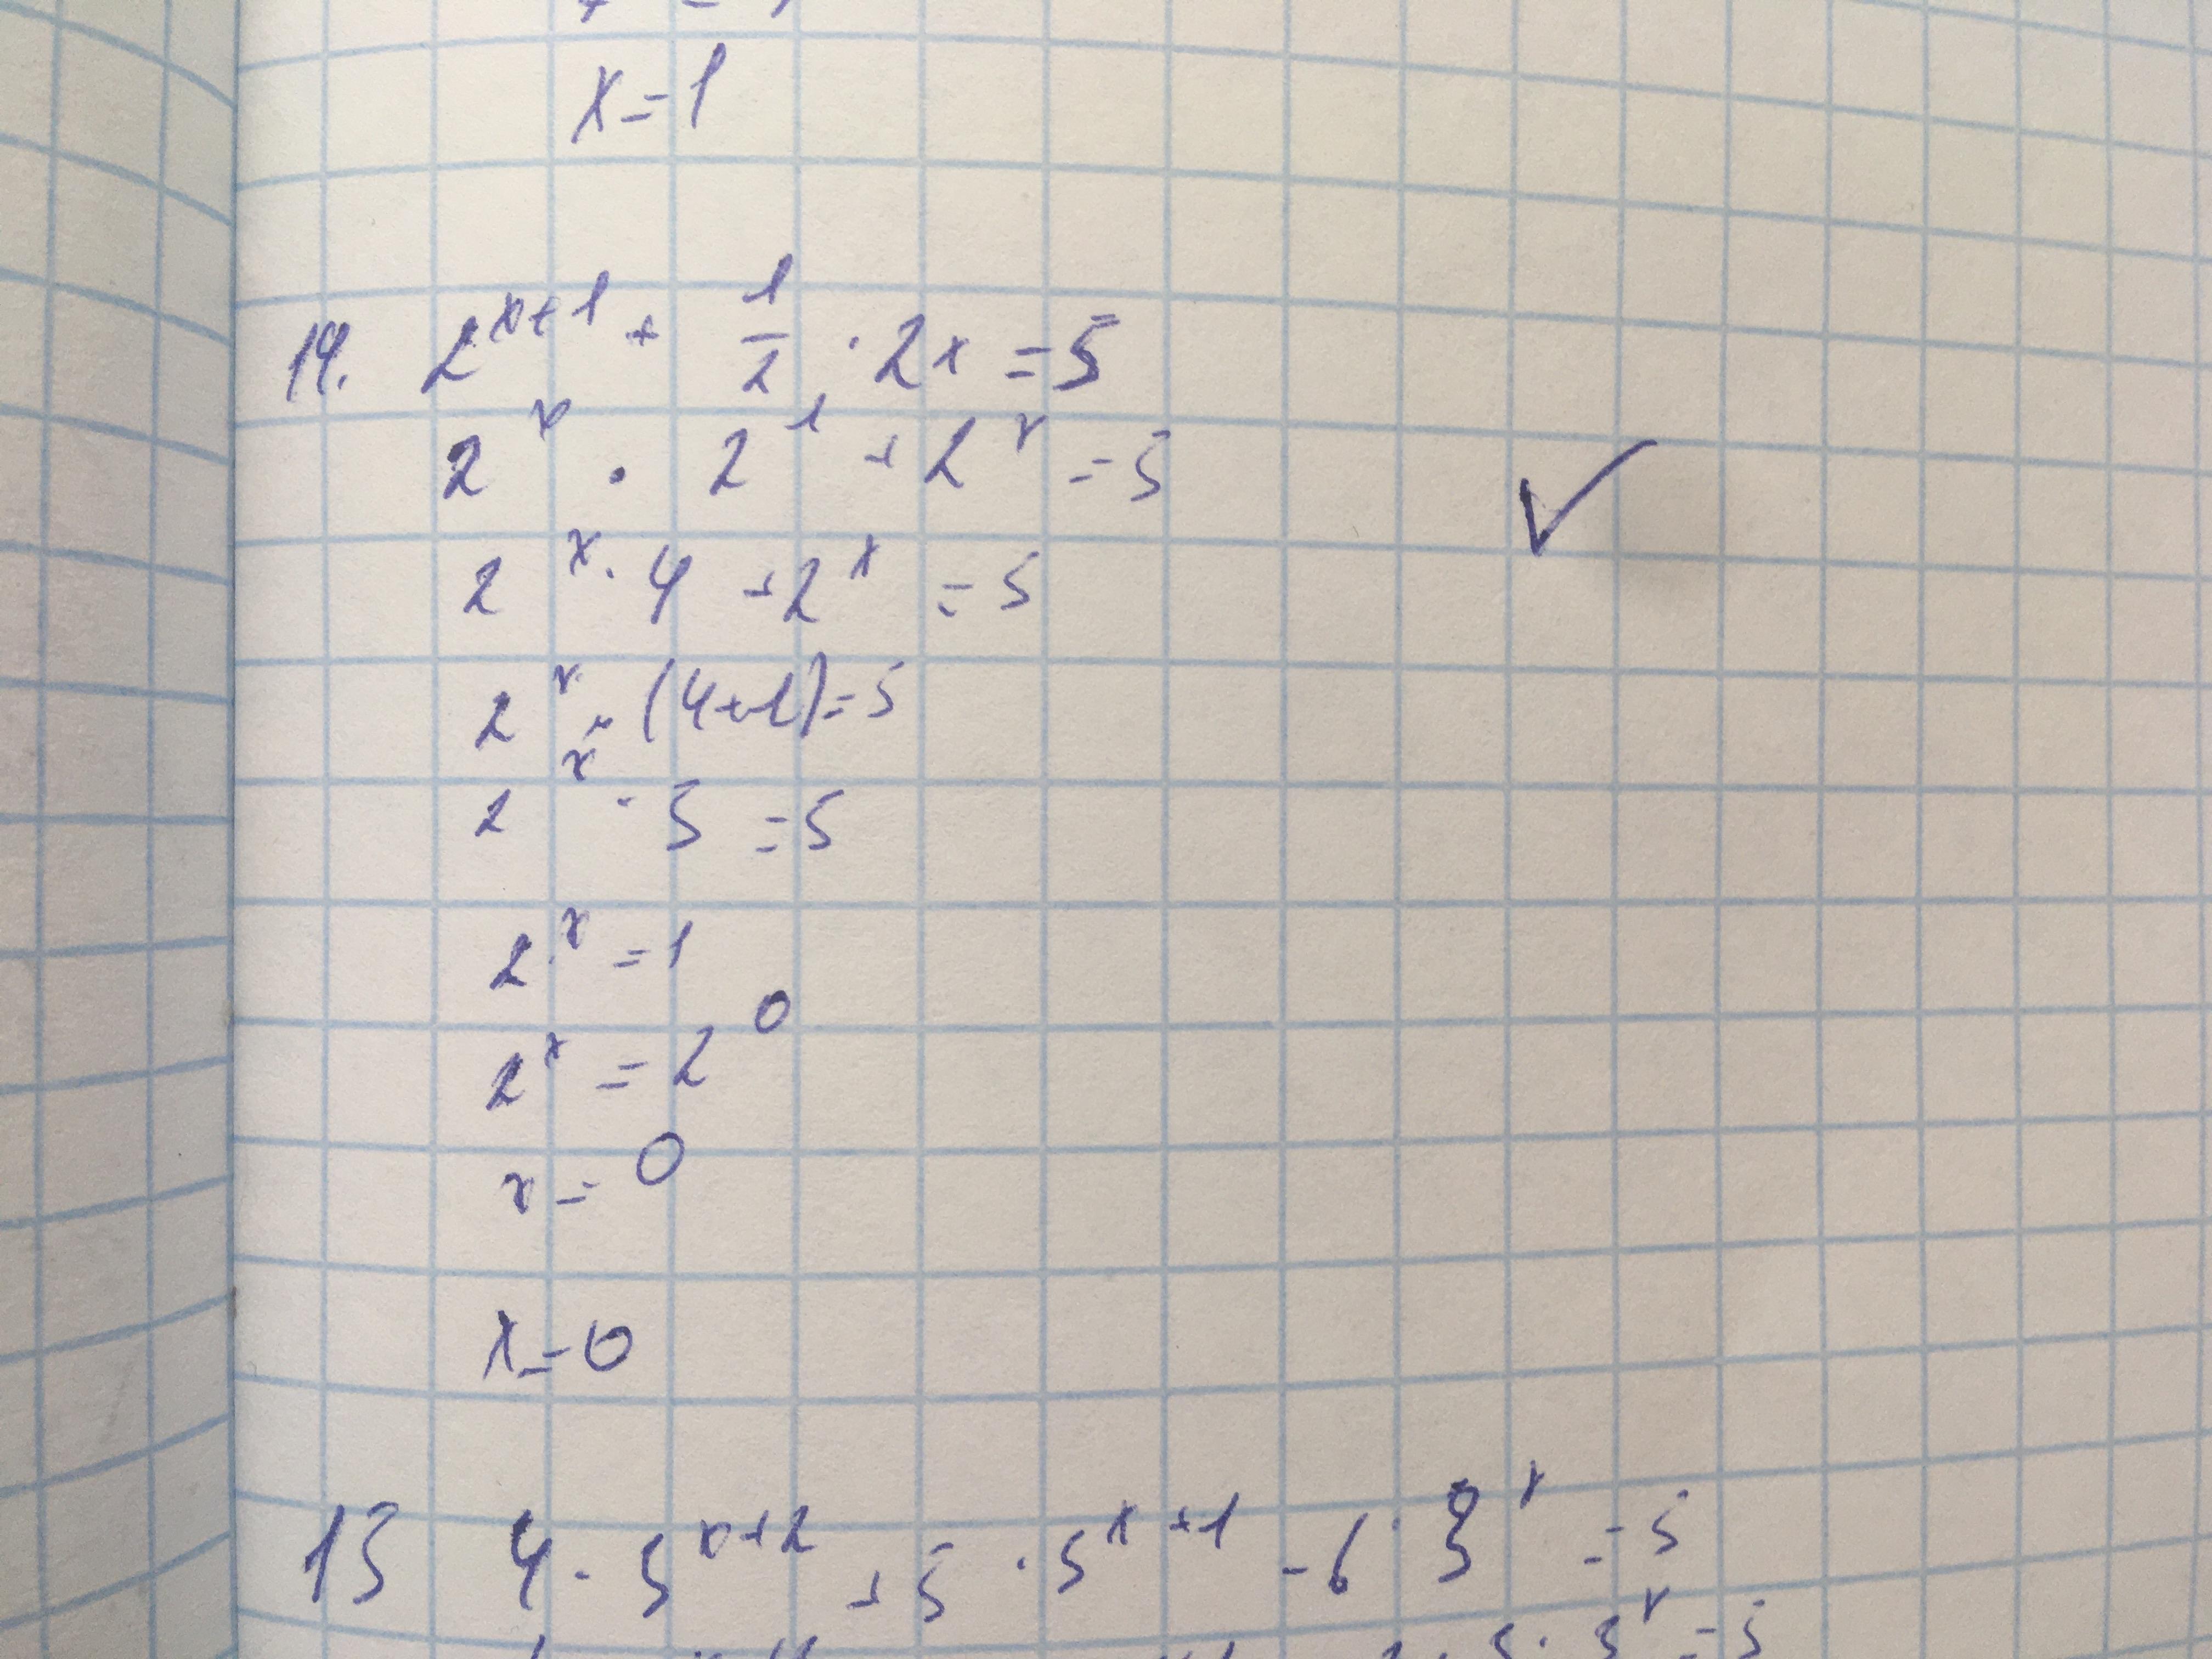 x=1
14. 2^x+1 + 1/2 · 2x = 5
2^x · 2^1 + 2^x = 5
2^x · 4 + 2^x = 5
2^x · (4+1) = 5
2^x · 5 = 5
2^x = 1
2^x = 2^0
x = 0
x = 0
15 4 · 5^x+2 + 5 · 5^x+1 - 6 · 3^x = 5